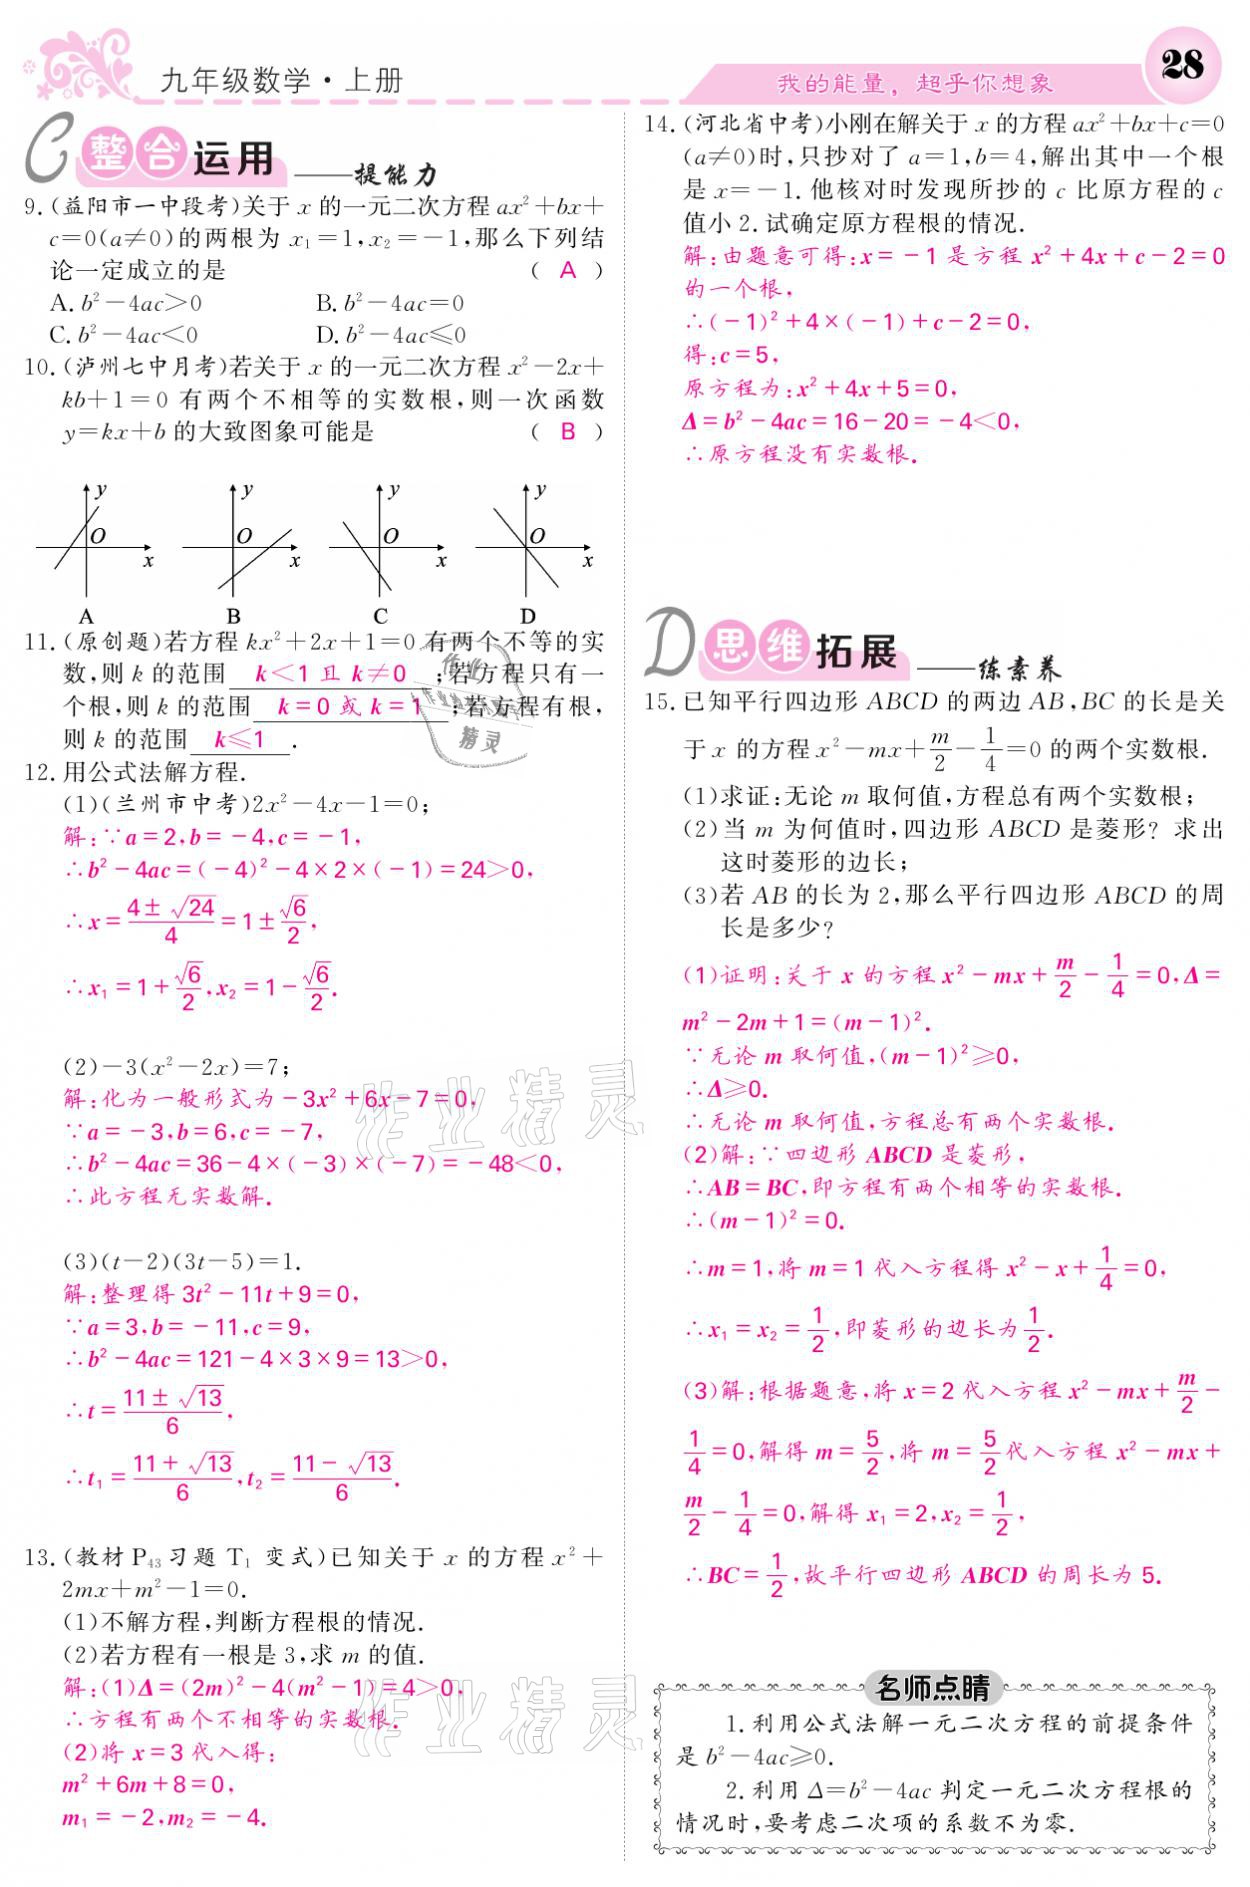 九年级数学·上册
我的能量，超乎你想象
28
C 整合运用 ——提能力
9.(益阳市一中段考)关于 x 的一元二次方程 ax²+bx+
c=0(a≠0)的两根为 x₁=1,x₂=-1,那么下列结
论一定成立的是 ( A )
A. b²-4ac>0 B. b²-4ac=0
C. b²-4ac<0 D. b²-4ac≤0
10.(泸州七中月考)若关于 x 的一元二次方程 x²-2x+
kb+1=0 有两个不相等的实数根,则一次函数
y=kx+b 的大致图象可能是 ( B )
y y y y
O O O O
x x x x
A B C D
11.(原创题)若方程 kx²+2x+1=0 有两个不等的实
数,则 k 的范围 k<1 且 k≠0 ;若方程只有一
个根,则 k 的范围 k=0 或 k=1 ;若方程有根,
则 k 的范围 k≤1 .
12.用公式法解方程.
(1)(兰州市中考)2x²-4x-1=0;
解:∵a=2,b=-4,c=-1,
∴b²-4ac=(-4)²-4×2×(-1)=24>0,
∴x=(4±√24)/4=1±√6/2,
∴x₁=1+√6/2,x₂=1-√6/2.
(2)-3(x²-2x)=7;
解:化为一般形式为-3x²+6x-7=0,
∵a=-3,b=6,c=-7,
∴b²-4ac=36-4×(-3)×(-7)=-48<0,
∴此方程无实数解.
(3)(t-2)(3t-5)=1.
解:整理得 3t²-11t+9=0,
∵a=3,b=-11,c=9,
∴b²-4ac=121-4×3×9=13>0,
∴t=(11±√13)/6,
∴t₁=(11+√13)/6,t₂=(11-√13)/6.
13.(教材 P₄₃ 习题 T₁ 变式)已知关于 x 的方程 x²+
2mx+m²-1=0.
(1)不解方程,判断方程根的情况.
(2)若方程有一根是 3,求 m 的值.
解:(1)Δ=(2m)²-4(m²-1)=4>0,
∴方程有两个不相等的实数根.
(2)将 x=3 代入得:
m²+6m+8=0,
m₁=-2,m₂=-4.
14.(河北省中考)小刚在解关于 x 的方程 ax²+bx+c=0
(a≠0)时,只抄对了 a=1,b=4,解出其中一个根
是 x=-1.他核对时发现所抄的 c 比原方程的 c
值小 2.试确定原方程根的情况.
解:由题意可得:x=-1 是方程 x²+4x+c-2=0
的一个根,
∴(-1)²+4×(-1)+c-2=0,
得:c=5,
原方程为:x²+4x+5=0,
Δ=b²-4ac=16-20=-4<0,
∴原方程没有实数根.
D 思维拓展 ——练素养
15.已知平行四边形 ABCD 的两边 AB,BC 的长是关
于 x 的方程 x²-mx+m/2-1/4=0 的两个实数根.
(1)求证:无论 m 取何值,方程总有两个实数根;
(2)当 m 为何值时,四边形 ABCD 是菱形? 求出
这时菱形的边长;
(3)若 AB 的长为 2,那么平行四边形 ABCD 的周
长是多少?
(1)证明:关于 x 的方程 x²-mx+m/2-1/4=0,Δ=
m²-2m+1=(m-1)².
∵无论 m 取何值,(m-1)²≥0,
∴Δ≥0.
∴无论 m 取何值,方程总有两个实数根.
(2)解:∵四边形 ABCD 是菱形,
∴AB=BC,即方程有两个相等的实数根.
∴(m-1)²=0.
∴m=1,将 m=1 代入方程得 x²-x+1/4=0,
∴x₁=x₂=1/2,即菱形的边长为1/2.
(3)解:根据题意,将 x=2 代入方程 x²-mx+m/2-
1/4=0,解得 m=5/2,将 m=5/2代入方程 x²-mx+
m/2-1/4=0,解得 x₁=2,x₂=1/2,
∴BC=1/2,故平行四边形 ABCD 的周长为 5.
名师点睛
1.利用公式法解一元二次方程的前提条件
是 b²-4ac≥0.
2.利用 Δ=b²-4ac 判定一元二次方程根的
情况时,要考虑二次项的系数不为零.
作业精灵
作业精灵